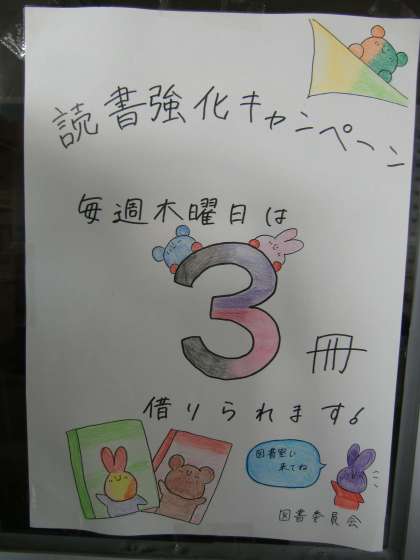 読書強化キャンペーン
毎週木曜日は
3冊
借りられます。
図書室に
来てね
図書委員会